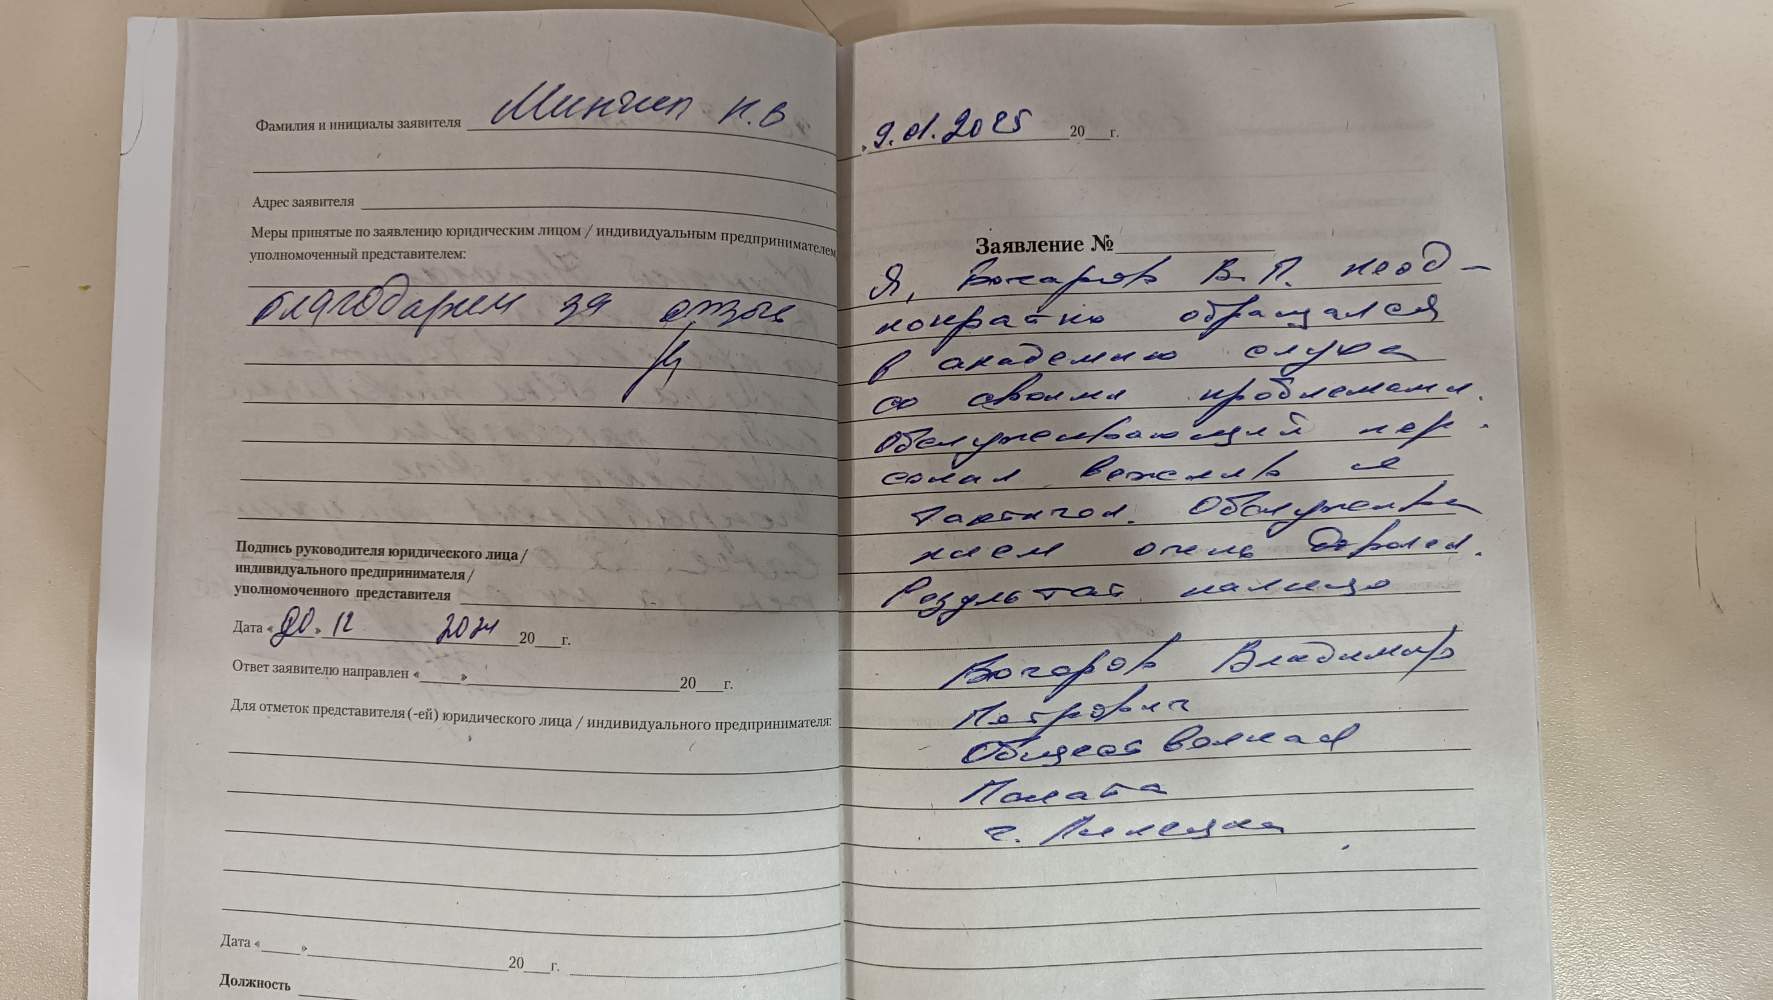 Фамилия и инициалы заявителя Н.В
Адрес заявителя
Меры принятые по заявлению юридическим лицом / индивидуальным предпринимателем
уполномоченный представителем:
благодарим за отзыв
Подпись руководителя юридического лица /
индивидуального предпринимателя /
уполномоченного представителя
Дата «20» 12 2024 20 г.
Ответ заявителю направлен « » 20 г.
Для отметок представителя (-ей) юридического лица / индивидуального предпринимателя:
Дата « » 20 г.
Должность
» 9.01.2025 20 г.
Заявление №
Я, Бочаров В.П. неод-
нократно обращался
в академию слуха
со своими проблемами.
Обслуживающий пер-
сонал вежлив и
тактичен. Обслужива
нием очень доволен.
Результат налицо
Бочаров Владимир
Петрович
Общественная
Палата
г. Липецка